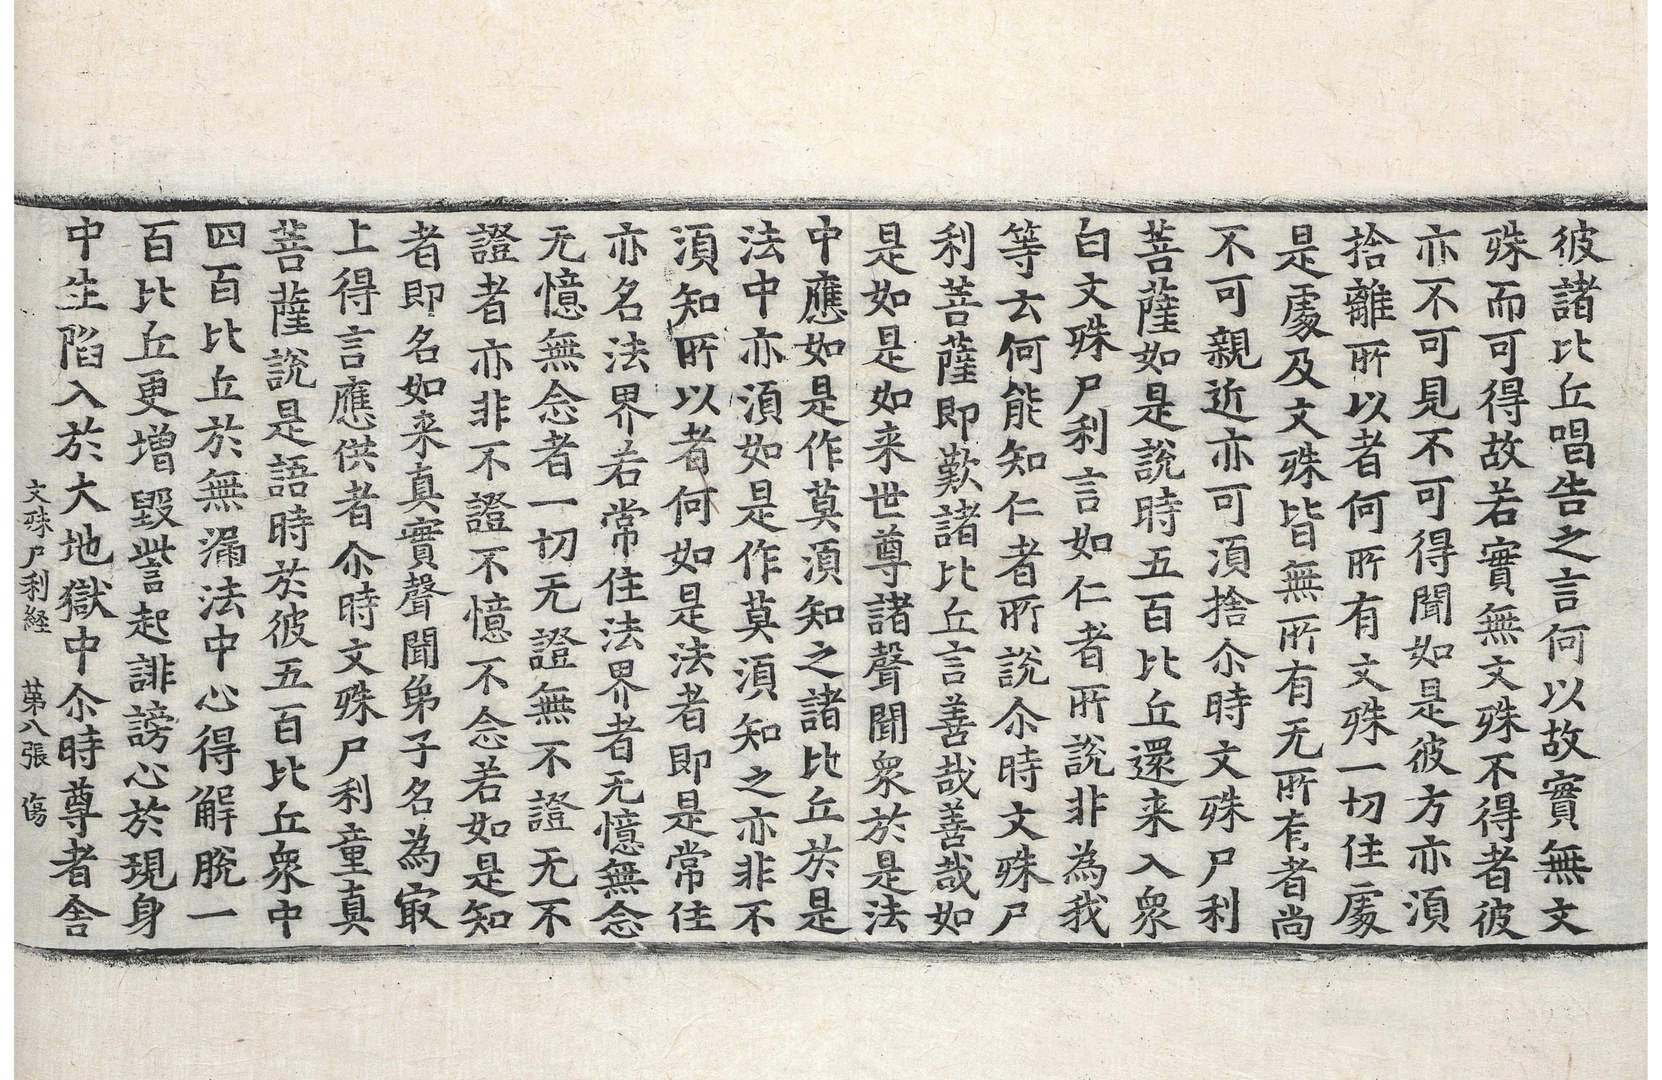 彼諸比丘唱告之言何以故實無文
殊而可得故若實無文殊不得者彼
亦不可見不可得聞如是彼方亦湏
捨離所以者何所有文殊一切住處
是處及文殊皆無所有无所有者尚
不可親近亦可湏捨尒時文殊尸利
菩薩如是說時五百比丘還来入衆
白文殊尸利言如仁者所說非為我
等云何能知仁者所說尒時文殊尸
利菩薩即歎諸比丘言善哉善哉如
是如是如来世尊諸聲聞衆於是法
中應如是作莫湏知之諸比丘於是
法中亦湏如是作莫湏知之亦非不
湏知所以者何如是法者即是常住
亦名法界若常住法界者无憶無念
无憶無念者一切无證無不證无不
證者亦非不證不憶不念若如是知
者即名如来真實聲聞弟子名為㝡
上得言應供者尒時文殊尸利童真
菩薩說是語時於彼五百比丘衆中
四百比丘於無漏法中心得解脫一
百比丘更增毀呰起誹謗心於現身
中生陷入於大地獄中尒時尊者舍
文殊尸利経　第八張　傷